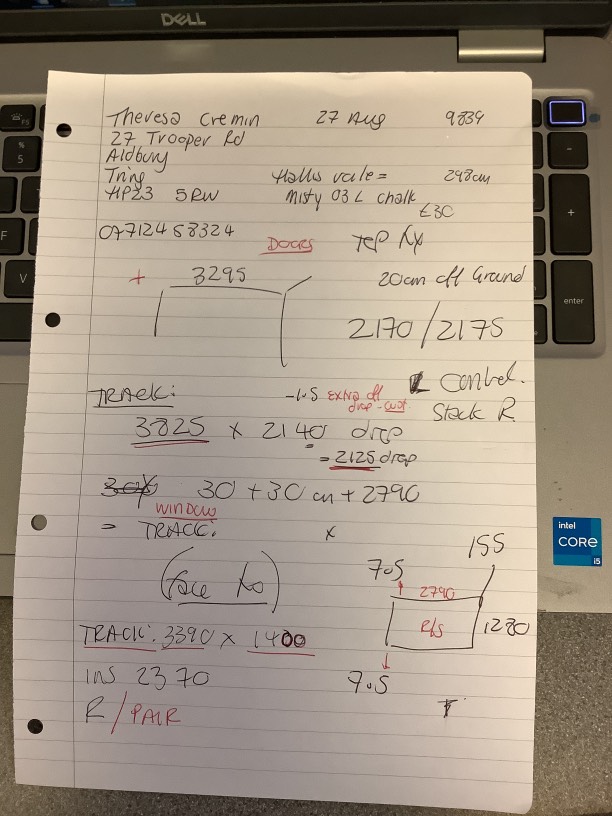 DELL
Theresa Cremin 27 Aug 9839
27 Trooper Rd
Aldbury
Tring Halls vale = 298cm
HP23 5RW Misty 03 L chalk
£30
07712458324
DOORS TOP fix
+ 3295 20cm off Ground
2170/2175
L Control.
TRACK: -1.5 extra off
drop - cust Stack R.
3825 x 2140 drop
= 2125 drop
30 + 30 cm + 2790
WINDOW
= TRACK. x
155
7.5
(face fix) 2790
R/S 1280
TRACK: 3390 x 1400
INS 2370 7.5
R / PAIR
intel
CORE
i5
F5
%
5
F
V
-
+
enter